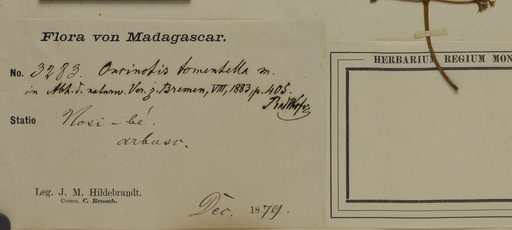 Flora von Madagascar.
No. 3283. Oncinotis tomentella m.
in Abh. d. naturw. Ver. z. Bremen, VIII, 1883 p. 405.
Radlkofer
Statio Nosi-bé.
arbusc.
Leg. J. M. Hildebrandt.
Comm. C. Rensch.
Dec. 1879.
HERBARIUM REGIUM MON